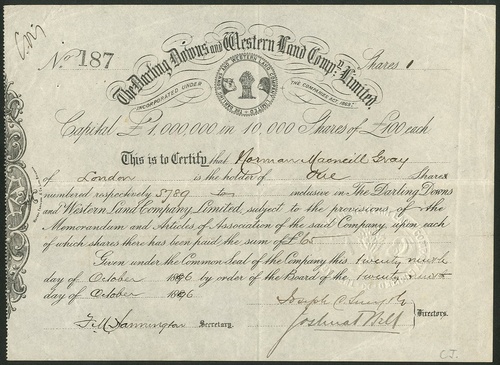 No 187
Shares 1
The Darling Downs and Western Land Compy. Limited.
INCORPORATED UNDER THE COMPANIES ACT, 1863.
Capital £1,000,000 in 10,000 Shares of £100 each
This is to Certify that Norman Macneill Gray
of London is the holder of One Share
numbered respectively 5789 to inclusive in The Darling Downs
and Western Land Company Limited, subject to the provisions of the
Memorandum and Articles of Association of the said Company, upon each
of which shares there has been paid the sum of £65
Given under the Common seal of the Company this twenty ninth
day of October 1896 by order of the Board of the twenty ninth
day of October 1896
Joseph C. Smyth
Joshua T Bell
Directors.
Secretary.
C.J.